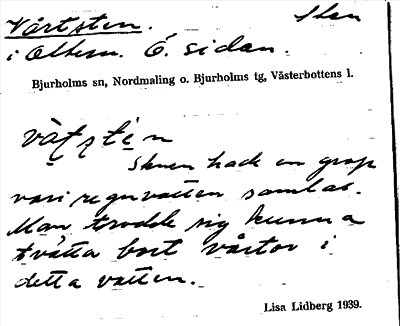 Vårtsten. Sten
i Olhem. Ö. sidan.
Bjurholms sn, Nordmaling o. Bjurholms tg, Västerbottens l.
vàţşte̩n
Stenen hade en grop
vari regnvatten samlas.
Man trodde sig kunna
tvätta bort vårtor i
detta vatten.
Lisa Lidberg 1939.